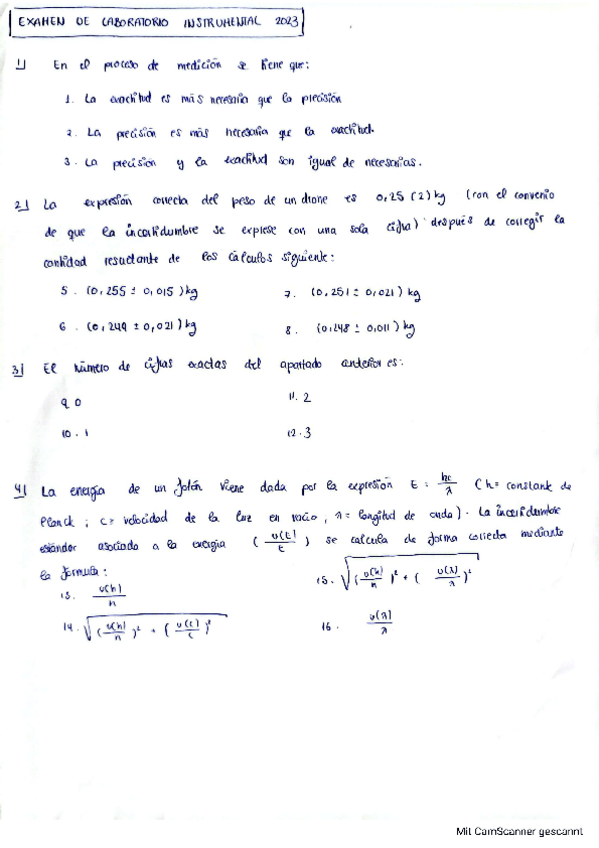 EXAMEN DE LABORATORIO INSTRUMENTAL 2023
1) En el proceso de medición se tiene que:
1. La exactitud es más necesaria que la precisión
2. La precisión es más necesaria que la exactitud.
3. La precisión y la exactitud son igual de necesarias.
2) La expresión correcta del peso de un drone es 0,25 (2) kg (con el convenio
de que la incertidumbre se exprese con una sola cifra) después de corregir la
cantidad resultante de los cálculos siguiente:
5. (0,255 ± 0,015) kg 7. (0,251 ± 0,021) kg
6. (0,249 ± 0,021) kg 8. (0,248 ± 0,011) kg
3) El número de cifras exactas del apartado anterior es:
9. 0 11. 2
10. 1 12. 3
4) La energía de un fotón viene dada por la expresión E = hc/λ (h = constante de
Planck; c = velocidad de la luz en vacío, λ = longitud de onda). La incertidumbre
estándar asociada a la energía (u(E)/E) se calcula de forma correcta mediante
la fórmula:
13. u(h)/h 15. √((u(h)/h)² + (u(λ)/λ)²)
14. √((u(h)/h)² + (u(c)/c)²) 16. u(λ)/λ
Mit CamScanner gescannt